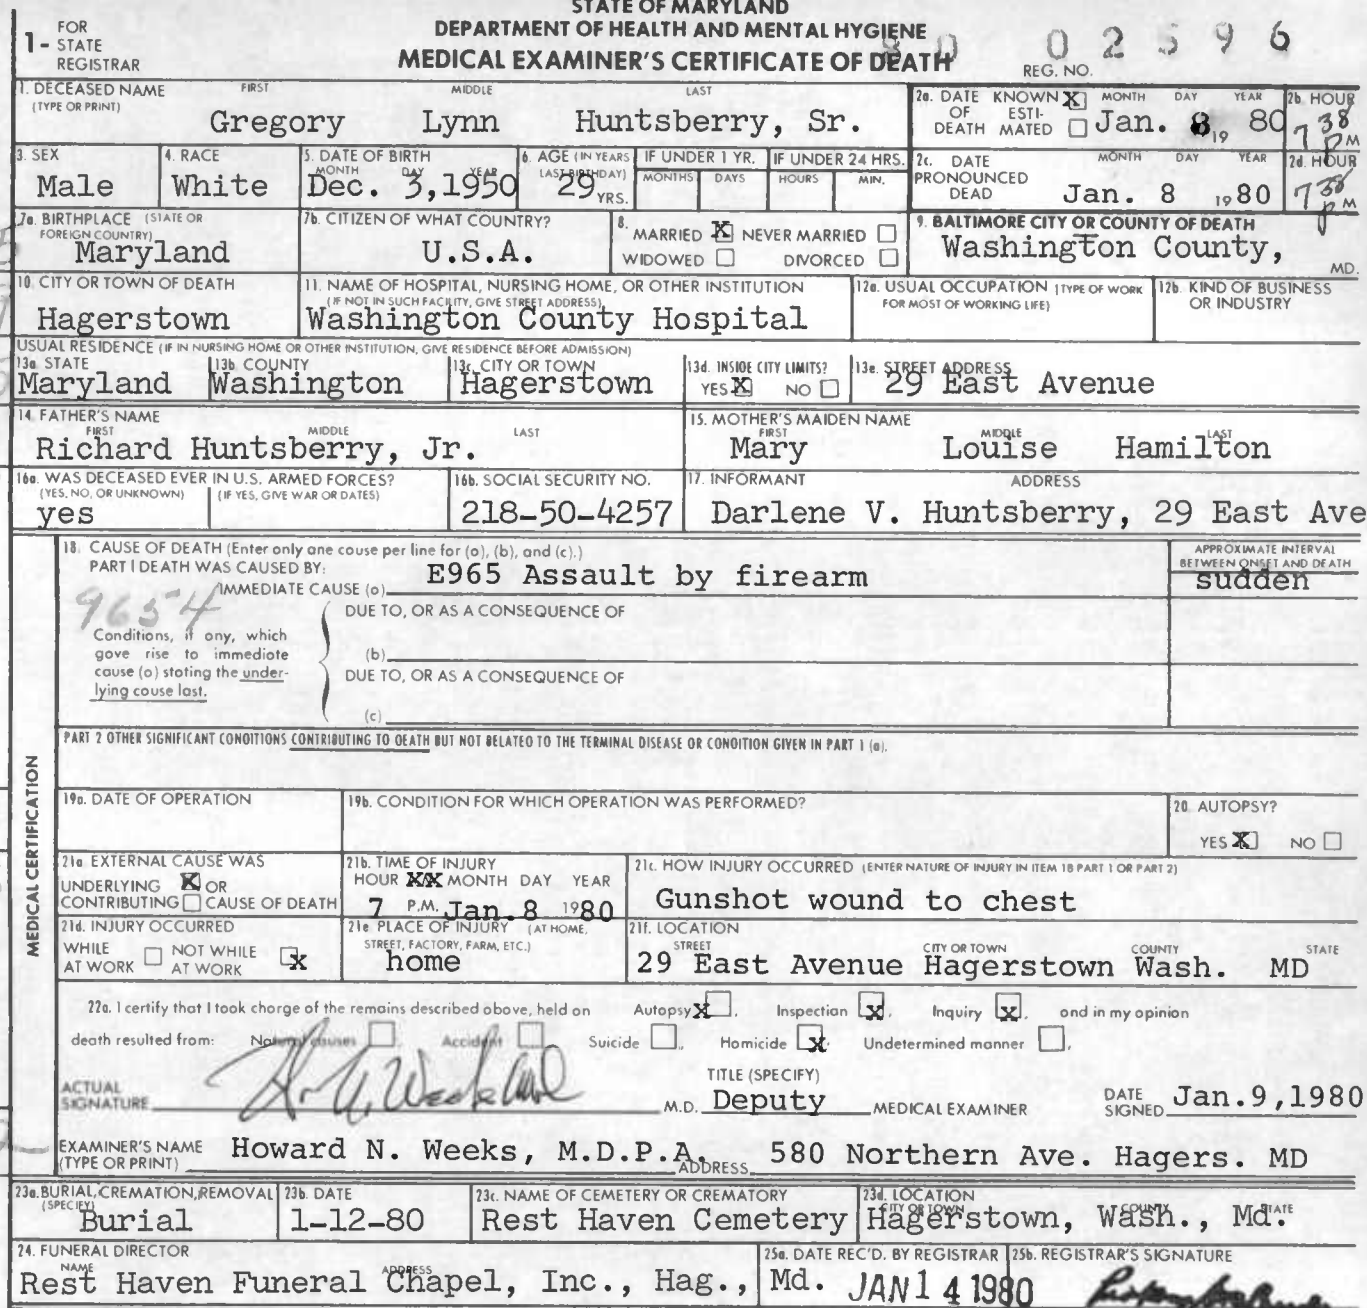 STATE OF MARYLAND
DEPARTMENT OF HEALTH AND MENTAL HYGIENE
MEDICAL EXAMINER'S CERTIFICATE OF DEATH
1- FOR STATE REGISTRAR
80 02596
REG. NO.
1. DECEASED NAME (TYPE OR PRINT) FIRST MIDDLE LAST
Gregory Lynn Huntsberry, Sr.
2a. DATE OF DEATH KNOWN X ESTIMATED MONTH DAY YEAR
Jan. 8, 19 80
2b. HOUR
7 38 PM
3. SEX
Male
4. RACE
White
5. DATE OF BIRTH MONTH DAY YEAR
Dec. 3,1950
6. AGE (IN YEARS LAST BIRTHDAY)
29 YRS.
IF UNDER 1 YR. MONTHS DAYS
IF UNDER 24 HRS. HOURS MIN.
2c. DATE PRONOUNCED DEAD MONTH DAY YEAR
Jan. 8 19 80
2d. HOUR
7 38 PM
7a. BIRTHPLACE (STATE OR FOREIGN COUNTRY)
Maryland
7b. CITIZEN OF WHAT COUNTRY?
U.S.A.
8. MARRIED X NEVER MARRIED
WIDOWED DIVORCED
9. BALTIMORE CITY OR COUNTY OF DEATH
Washington County, MD.
10. CITY OR TOWN OF DEATH
Hagerstown
11. NAME OF HOSPITAL, NURSING HOME, OR OTHER INSTITUTION
(IF NOT IN SUCH FACILITY, GIVE STREET ADDRESS)
Washington County Hospital
12a. USUAL OCCUPATION (TYPE OF WORK FOR MOST OF WORKING LIFE)
12b. KIND OF BUSINESS OR INDUSTRY
USUAL RESIDENCE (IF IN NURSING HOME OR OTHER INSTITUTION, GIVE RESIDENCE BEFORE ADMISSION)
13a. STATE
Maryland
13b. COUNTY
Washington
13c. CITY OR TOWN
Hagerstown
13d. INSIDE CITY LIMITS?
YES X NO
13e. STREET ADDRESS
29 East Avenue
14. FATHER'S NAME FIRST MIDDLE LAST
Richard Huntsberry, Jr.
15. MOTHER'S MAIDEN NAME FIRST MIDDLE LAST
Mary Louise Hamilton
16a. WAS DECEASED EVER IN U.S. ARMED FORCES?
(YES, NO, OR UNKNOWN) (IF YES, GIVE WAR OR DATES)
yes
16b. SOCIAL SECURITY NO.
218-50-4257
17. INFORMANT ADDRESS
Darlene V. Huntsberry, 29 East Ave
MEDICAL CERTIFICATION
18. CAUSE OF DEATH (Enter only one cause per line for (a), (b), and (c).)
PART I DEATH WAS CAUSED BY:
IMMEDIATE CAUSE (a) E965 Assault by firearm
APPROXIMATE INTERVAL BETWEEN ONSET AND DEATH
sudden
9654
Conditions, if any, which gave rise to immediate cause (a) stating the underlying cause last.
DUE TO, OR AS A CONSEQUENCE OF
(b)
DUE TO, OR AS A CONSEQUENCE OF
(c)
PART 2 OTHER SIGNIFICANT CONDITIONS CONTRIBUTING TO DEATH BUT NOT RELATED TO THE TERMINAL DISEASE OR CONDITION GIVEN IN PART 1 (a).
19a. DATE OF OPERATION
19b. CONDITION FOR WHICH OPERATION WAS PERFORMED?
20. AUTOPSY?
YES X NO
21a. EXTERNAL CAUSE WAS
UNDERLYING X OR
CONTRIBUTING CAUSE OF DEATH
21b. TIME OF INJURY
HOUR XX MONTH DAY YEAR
7 P.M. Jan. 8 1980
21c. HOW INJURY OCCURRED (ENTER NATURE OF INJURY IN ITEM 18 PART 1 OR PART 2)
Gunshot wound to chest
21d. INJURY OCCURRED
WHILE AT WORK NOT WHILE AT WORK X
21e. PLACE OF INJURY (AT HOME, STREET, FACTORY, FARM, ETC.)
home
21f. LOCATION
STREET CITY OR TOWN COUNTY STATE
29 East Avenue Hagerstown Wash. MD
22a. I certify that I took charge of the remains described above, held on Autopsy X, Inspection X, Inquiry X, and in my opinion
death resulted from: Natural causes, Accident, Suicide, Homicide X, Undetermined manner,
ACTUAL SIGNATURE
M.D.
TITLE (SPECIFY)
Deputy MEDICAL EXAMINER
DATE SIGNED Jan.9,1980
EXAMINER'S NAME (TYPE OR PRINT) Howard N. Weeks, M.D.P.A. ADDRESS 580 Northern Ave. Hagers. MD
23a. BURIAL, CREMATION, REMOVAL (SPECIFY)
Burial
23b. DATE
1-12-80
23c. NAME OF CEMETERY OR CREMATORY
Rest Haven Cemetery
23d. LOCATION CITY OR TOWN COUNTY STATE
Hagerstown, Wash., Md.
24. FUNERAL DIRECTOR
NAME ADDRESS
Rest Haven Funeral Chapel, Inc., Hag., Md.
25a. DATE REC'D. BY REGISTRAR
JAN 14 1980
25b. REGISTRAR'S SIGNATURE